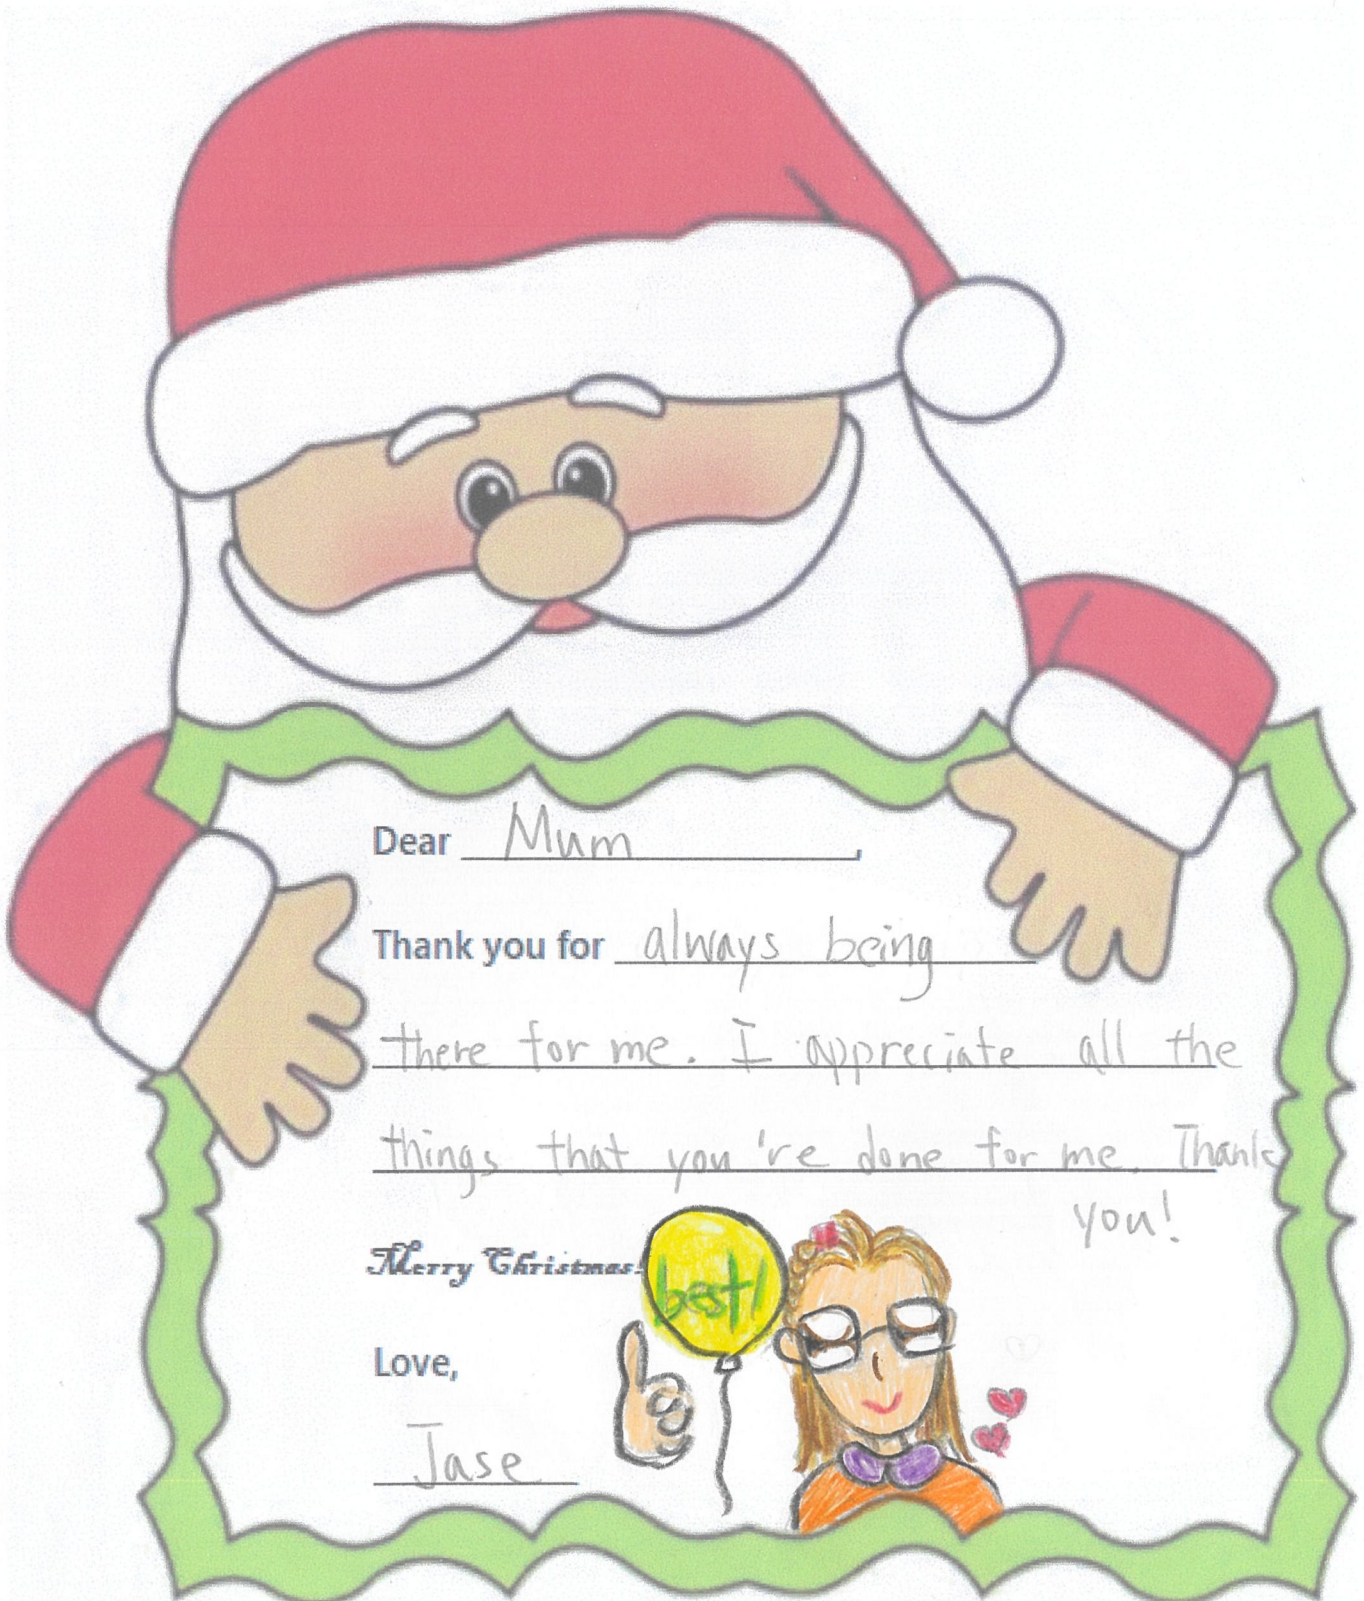 Dear Mum,
Thank you for always being
there for me. I appreciate all the
things that you're done for me. Thank
you!
Merry Christmas!
best!
Love,
Jase